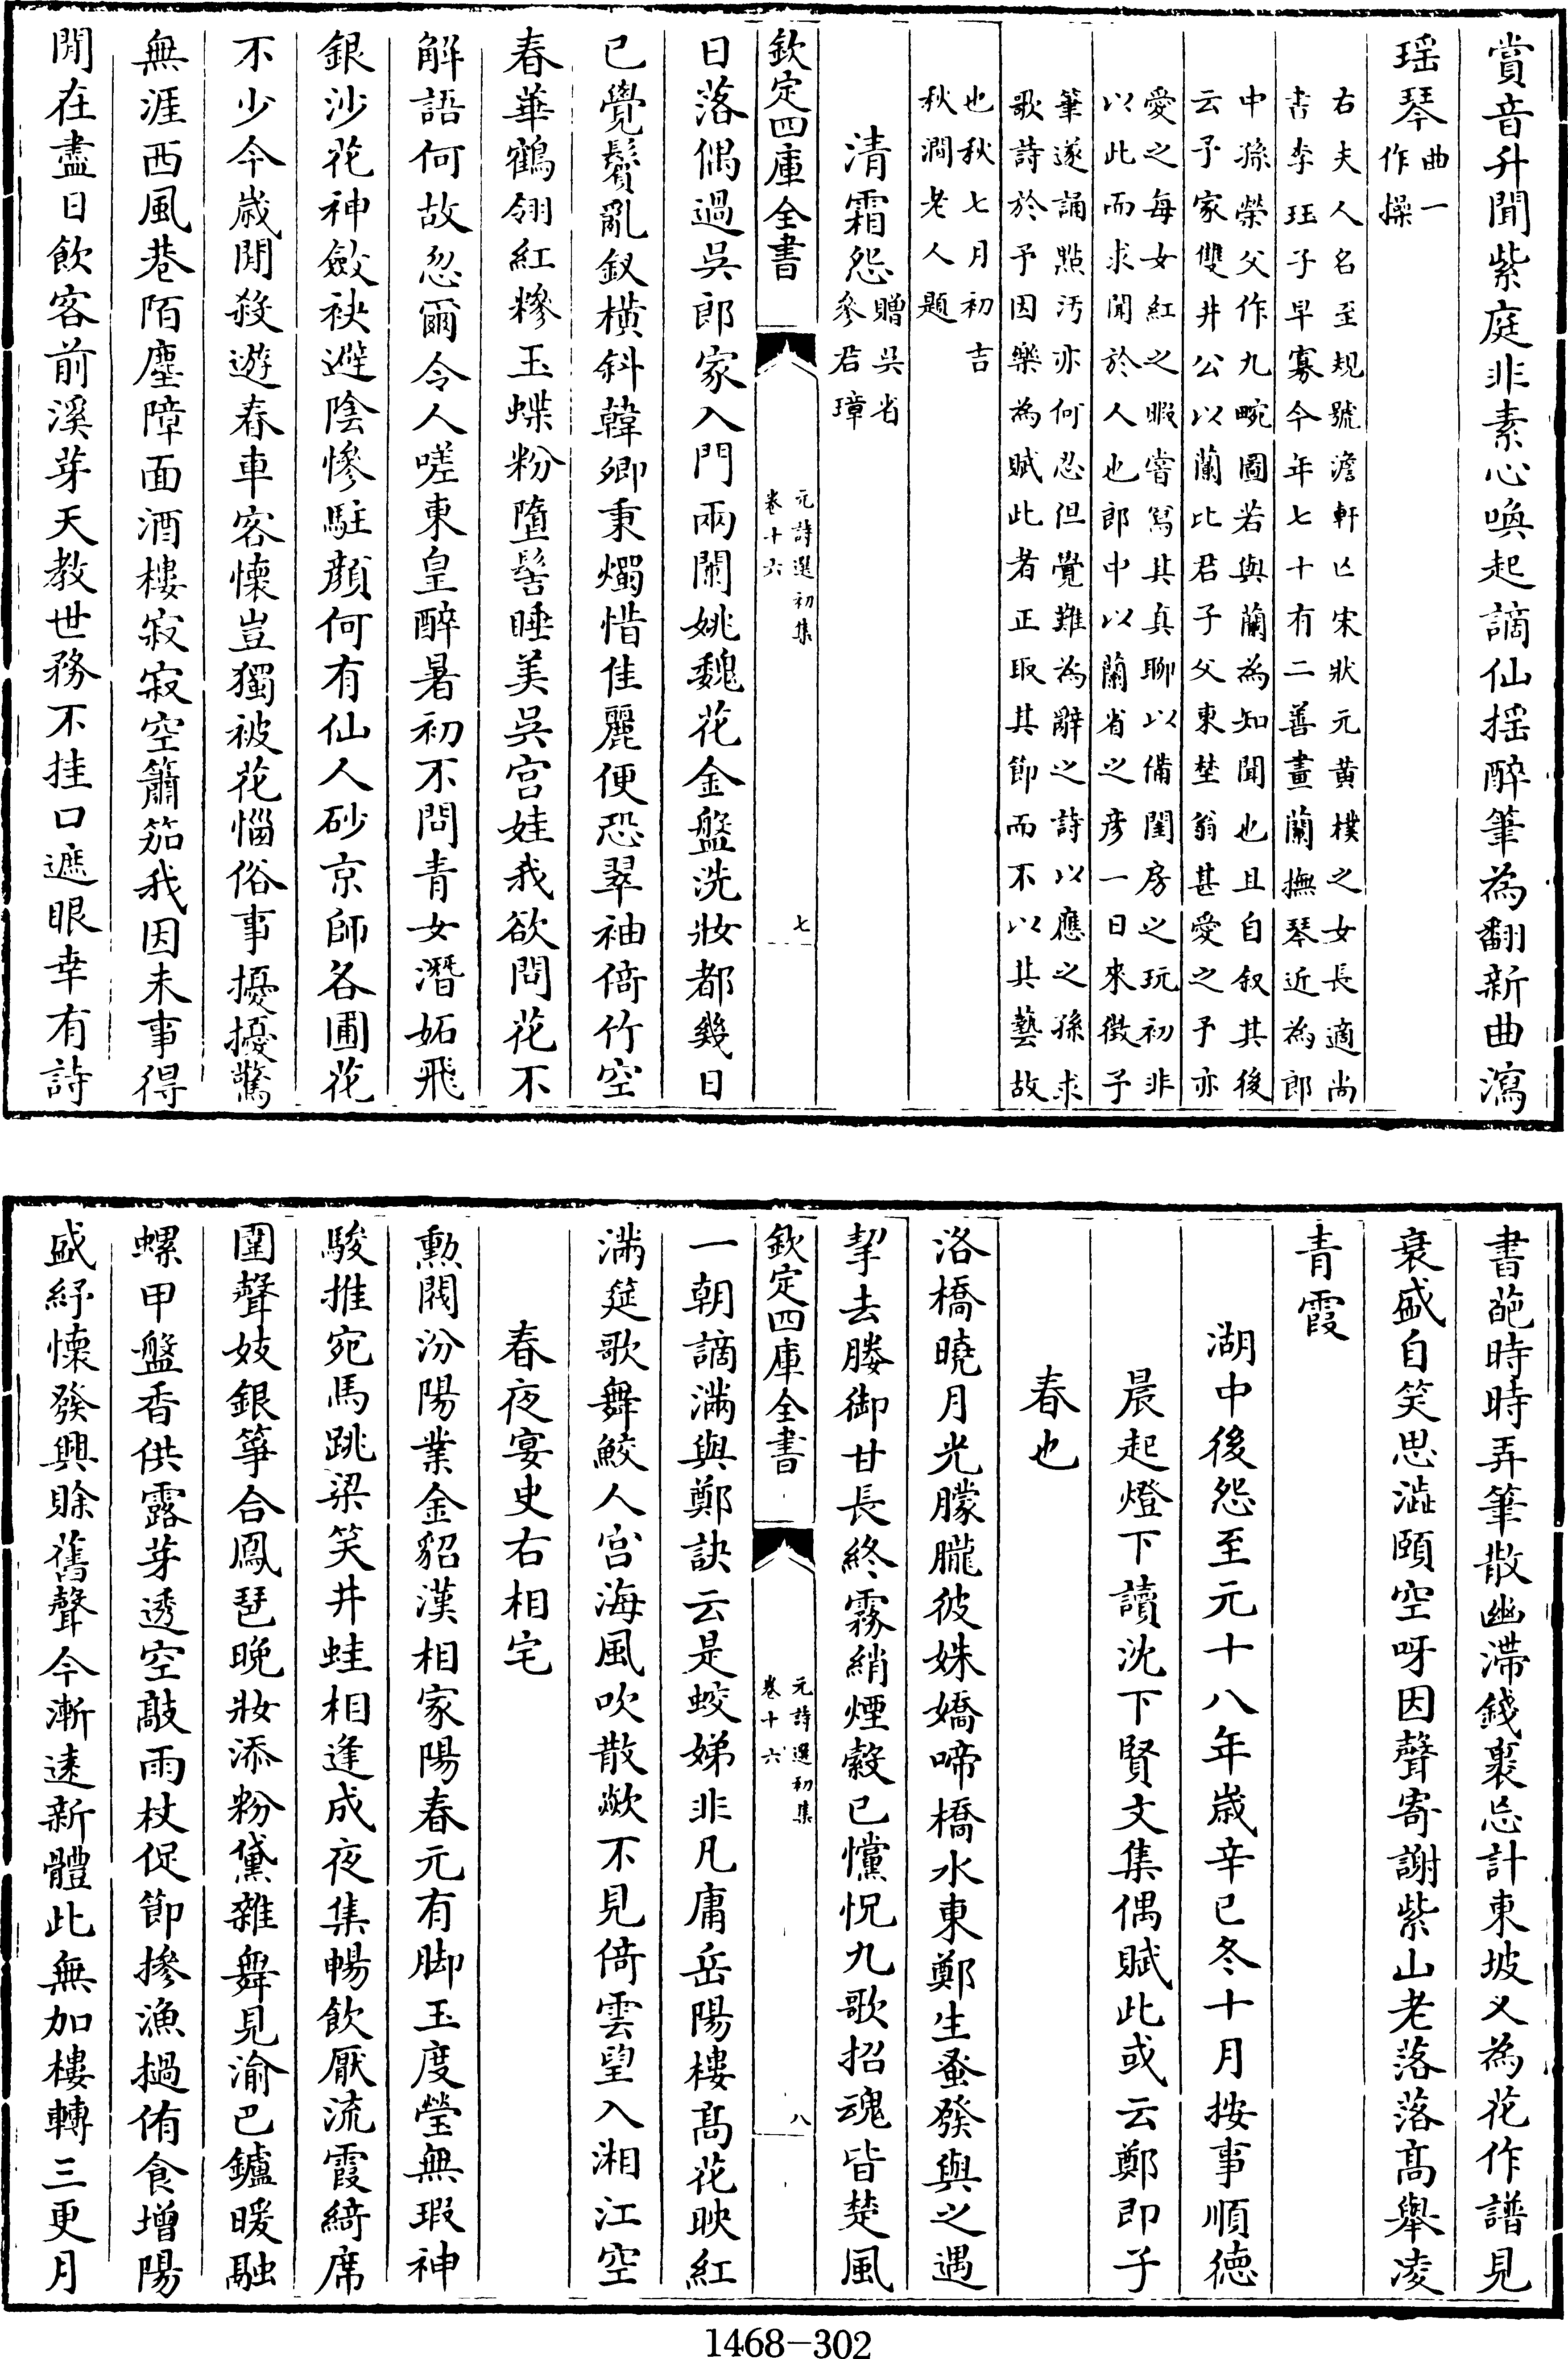 賞音升聞紫庭非素心喚起謫仙揺醉筆為翻新曲瀉
瑶琴曲一
作操
右夫人名至規號澹軒亡宋狀元黄樸之女長適尚
書李珏子早寡今年七十有二善畫蘭撫琴近為郎
中孫榮父作九畹圖若與蘭為知聞也且自叙其後
云予家雙井公以蘭比君子父東埜翁甚愛之予亦
愛之每女紅之暇嘗寫其真聊以備閨房之玩初非
以此而求聞於人也郎中以蘭省之彦一日來徴予
筆遂誦點汚亦何忍但覺難為辭之詩以應之孫求
歌詩於予因樂為賦此者正取其節而不以其藝故
也秋七月初吉
秋澗老人題
清霜怨贈吳省
參君璋
欽定四庫全書
元詩選初集
卷十六
七
日落偶過吳郎家入門兩闌姚魏花金盤洗妝都幾日
已覺鬢亂釵横斜韓卿秉燭惜佳麗便恐翠袖倚竹空
春華鶴翎紅糝玉蝶粉墮髻睡美吳宫娃我欲問花不
解語何故忍爾令人嗟東皇醉暑初不問青女潛妬飛
銀沙花神斂袂避陰慘駐顔何有仙人砂京師各圃花
不少今歳閒殺遊春車客懷豈獨被花惱俗事擾擾驚
無涯西風巷陌塵障面酒樓寂寂空簫笳我因未事得
閒在盡日飲客前溪芽天教世務不挂口遮眼幸有詩
書葩時時弄筆散幽滯錢裏忘計東坡乂為花作譜見
衰盛自笑思澁頤空呀因聲寄謝紫山老落落髙舉凌
青霞
湖中後怨至元十八年歳辛巳冬十月按事順徳
晨起燈下讀沈下賢文集偶賦此或云鄭即子
春也
洛橋曉月光朦朧彼姝嬌啼橋水東鄭生蚤發與之遇
挈去媵御甘長終霧綃煙縠已懺怳九歌招魂皆楚風
欽定四庫全書
元詩選初集
卷十六
八
一朝謫滿與鄭訣云是蛟娣非凡庸岳陽樓髙花映紅
滿筵歌舞鮫人宫海風吹散欻不見倚雲望入湘江空
春夜宴史右相宅
勲閥汾陽業金貂漢相家陽春元有脚玉度瑩無瑕神
駿推宛馬跳梁笑井蛙相逢成夜集暢飲厭流霞綺席
圍聲妓銀箏合鳳琶晚妝添粉黛雜舞見渝巴鑪暖融
螺甲盤香供露芽透空敲雨杖促節摻漁撾侑食增陽
盛紓懷發興賒舊聲今漸逺新體此無加樓轉三更月
1468-302